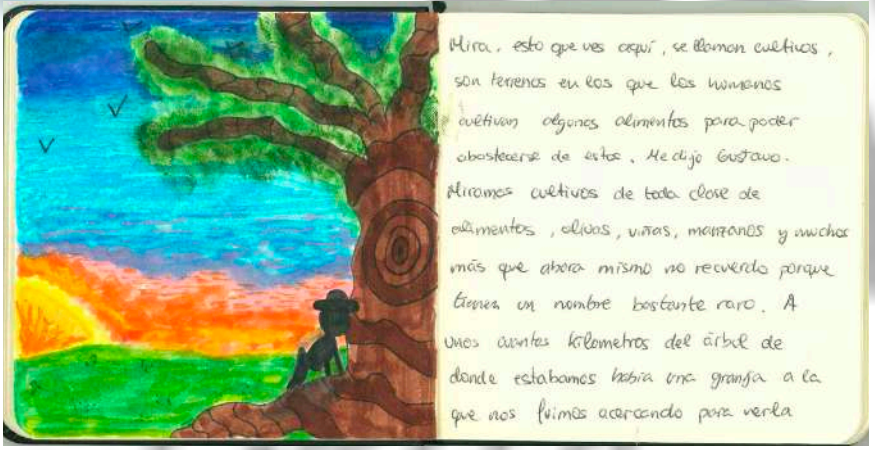 Mira, esto que ves aquí, se llaman cultivos,
son terrenos en los que los humanos
cultivan algunos alimentos para poder
abastecerse de estos. Me dijo Gustavo.
Miramos cultivos de toda clase de
alimentos, olivos, viñas, manzanos y muchos
más que ahora mismo no recuerdo porque
tienen un nombre bastante raro. A
unos cuantos kilometros del árbol de
donde estabamos había una granja a la
que nos fuimos acercando para verla